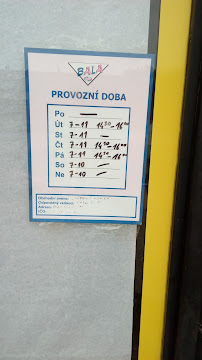 BALA
PROVOZNÍ DOBA
Po —
Út 7-11 14³⁰-16⁰⁰
St 7-11 —
Čt 7-11 14³⁰-16⁰⁰
Pá 7-11 14³⁰-16⁰⁰
So 7-10 —
Ne 7-10 —
Obchodní jméno:
Odpovědný vedoucí:
Adresa:
IČO: